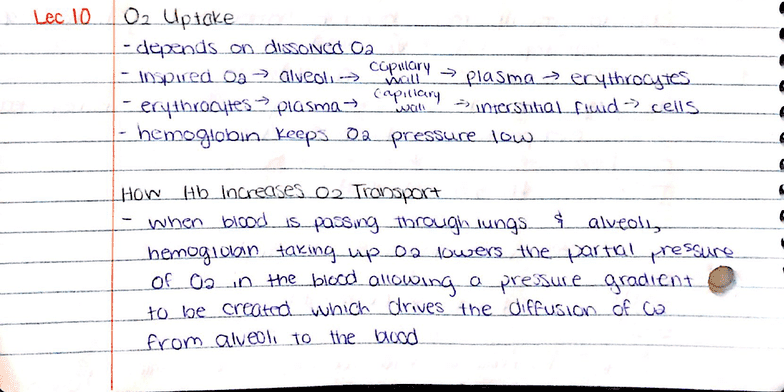 Lec 10 O2 Uptake
- depends on dissolved O2
- Inspired O2 → alveoli → capillary wall → plasma → erythrocytes
- erythrocytes → plasma → capillary wall → interstitial fluid → cells
- hemoglobin keeps O2 pressure low
How Hb Increases O2 Transport
- when blood is passing through lungs & alveoli,
hemoglobin taking up O2 lowers the partial pressure
of O2 in the blood allowing a pressure gradient
to be created which drives the diffusion of O2
from alveoli to the blood